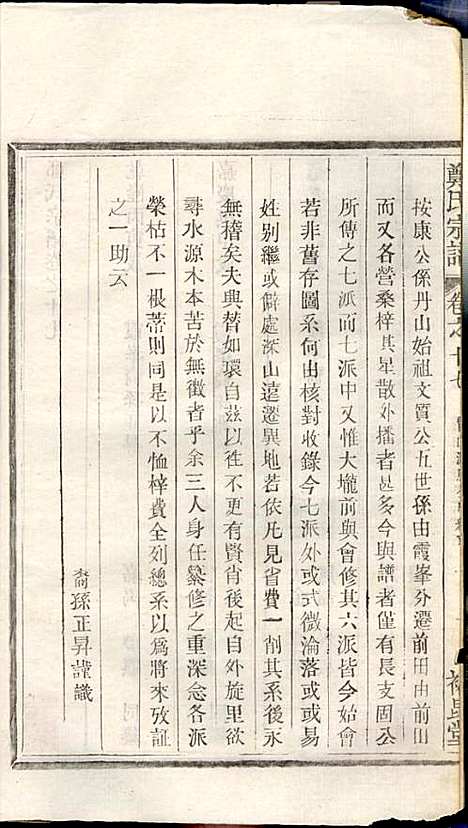 鄭氏宗譜
卷之十七
按康公係丹山始祖文質公五世孫由霞峯分遷前田由前田
而又各營桑梓其星散外播者甚多今與譜者僅有長支固公
所傳之七派而七派中又惟大壠前與會修其六派皆今始會
若非舊存圖系何由核對收錄今七派外或式微淪落或或易
姓別繼或僻處深山遠遷異地若依凡見省費一削其系後永
無稽矣夫興替如環自茲以徃不更有賢肖後起自外旋里欲
尋水源木本苦於無徵者乎余三人身任纂修之重深念各派
榮枯不一根蒂則同是以不恤梓費全列總系以為將來攷証
之一助云
裔孫正昇謹識